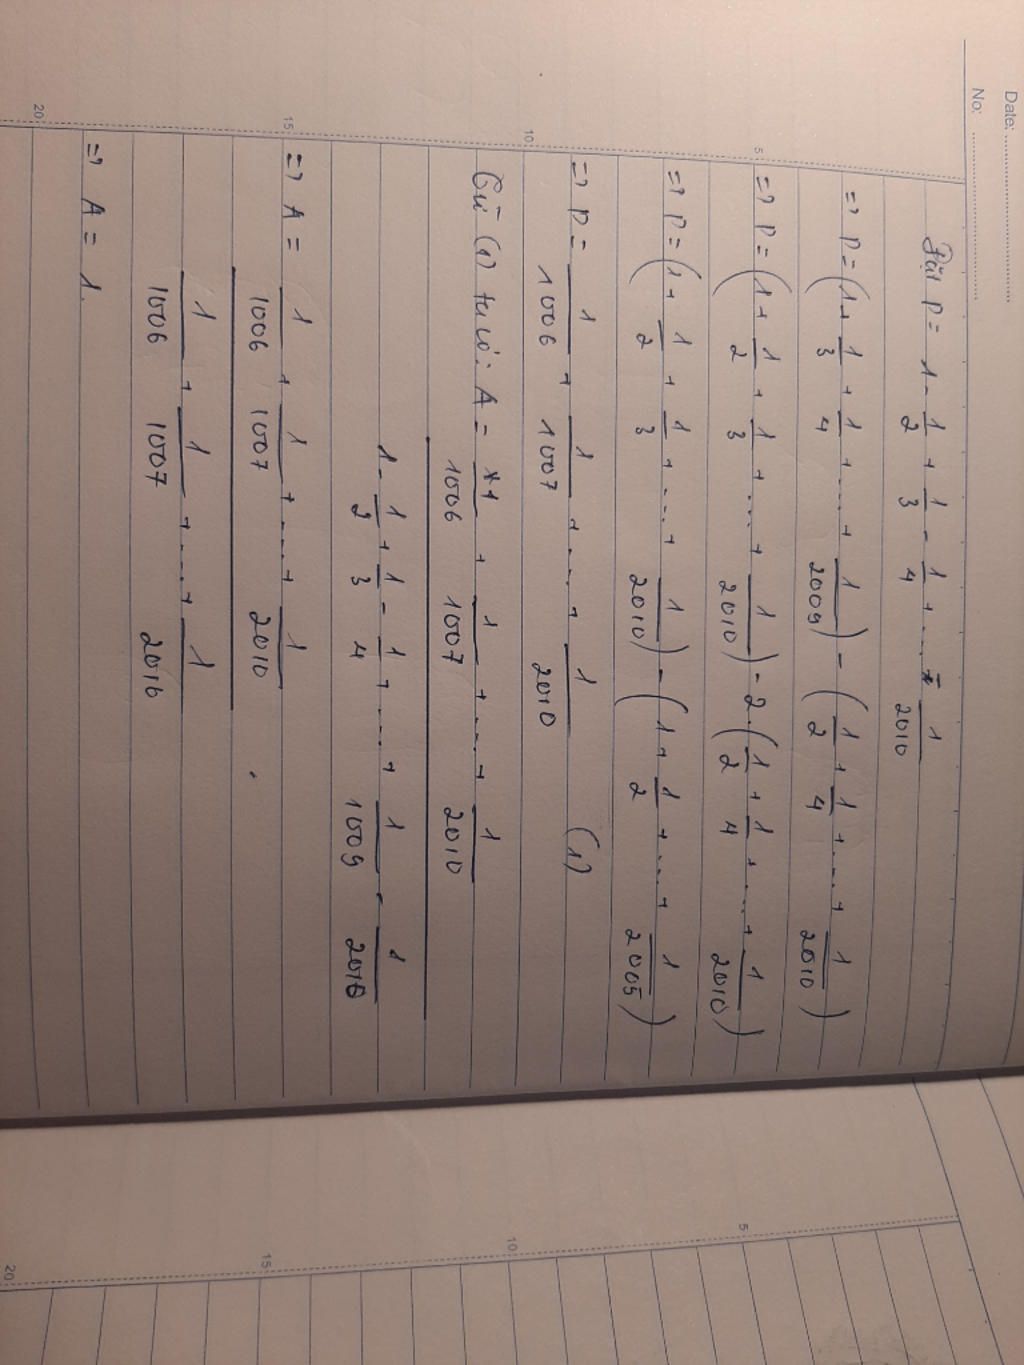 Date:
No:
Đặt P = 1 - 1/2 + 1/3 - 1/4 + .... - 1/2010
=> P = (1 + 1/3 + 1/4 + .... + 1/2009) - (1/2 + 1/4 + .... + 1/2010)
5
=> P = (1 + 1/2 + 1/3 + .... + 1/2010) - 2.(1/2 + 1/4 + .... + 1/2010)
=> P = (1 + 1/2 + 1/3 + .... + 1/2010) - (1 + 1/2 + .... + 1/2005)
=> P = 1/1006 + 1/1007 + .... + 1/2010 (1)
10
Từ (1) ta có: A = (1/1006 + 1/1007 + .... + 1/2010)/(1 - 1/2 + 1/3 - 1/4 + .... + 1/1009 - 1/2010)
15
=> A = (1/1006 + 1/1007 + .... + 1/2010)/(1/1006 + 1/1007 + .... + 1/2010)
=> A = 1.
20
5
10
15
20